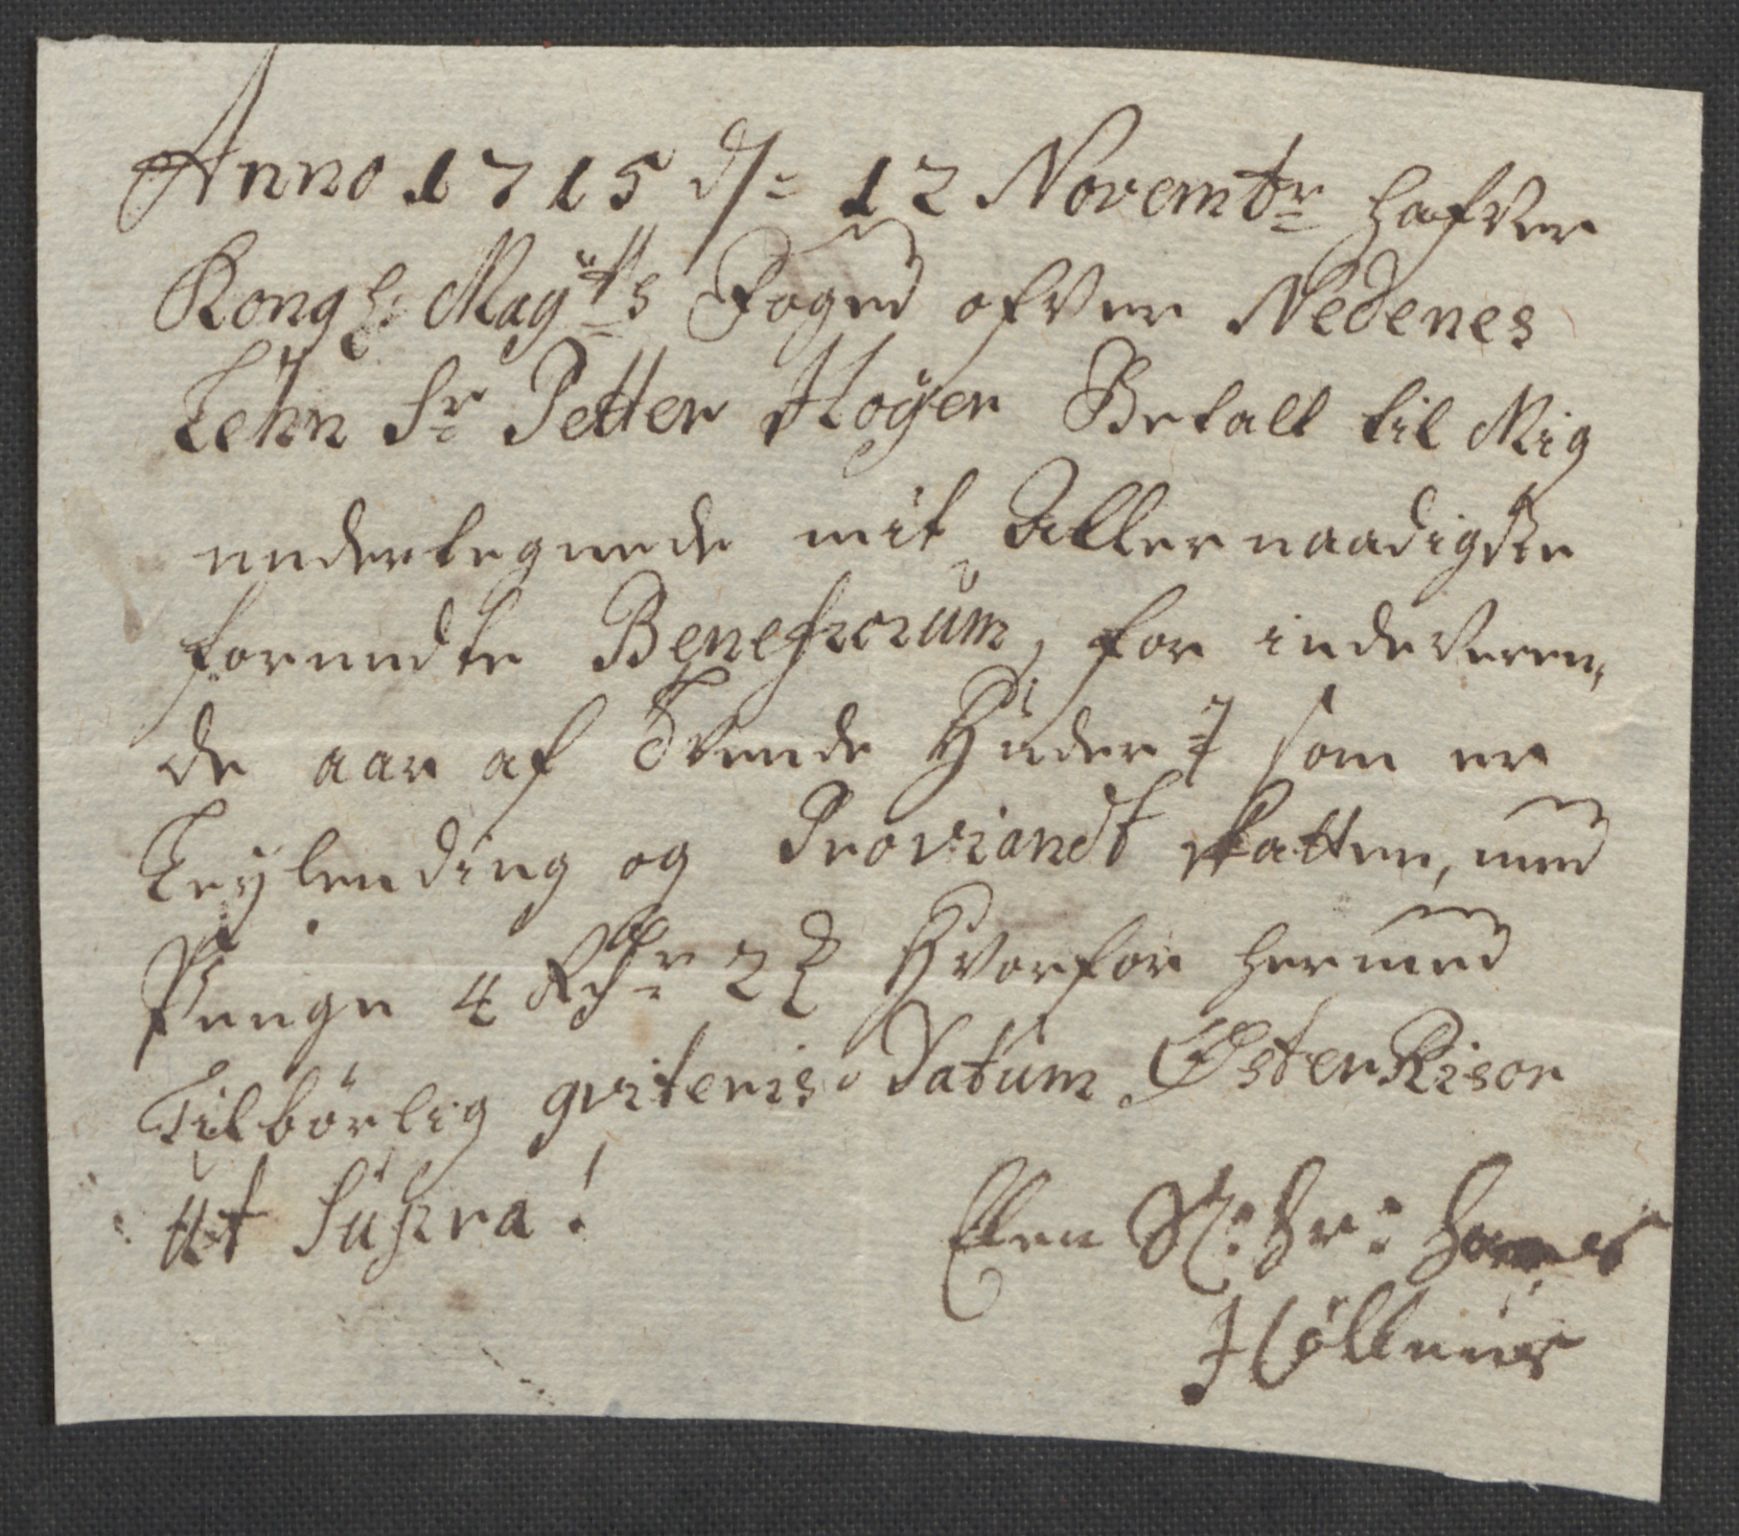 Anno 1715 d/: 12 Novembr hafver
Kongl: Mayts Foged ofver Nedenes
Lehn Sr Petter Høyer Betalt til Mig
undertegnede mit Allernaadigste
forundte Beneficium, for indeveren,
de aar af Trende Huder som er
Leylending og Proviandt skatten, med
Penge 4 Rdr 2 Hvorfor hermed
Tilbørlig qviteris. Datum ØsterRisør
Ut Supra!
Ellen Sl: Hr:
Höllners